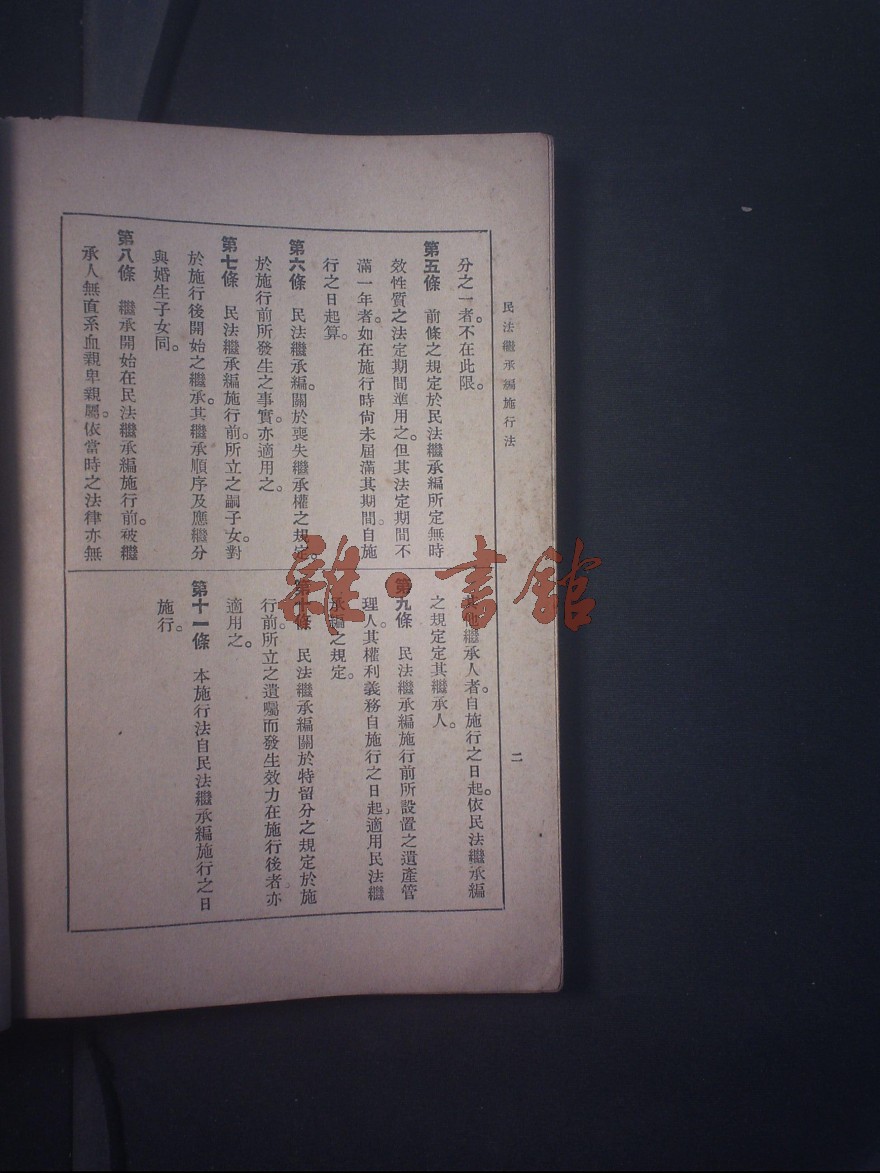 民法繼承編施行法
二
分之一者。不在此限。
第五條　前條之規定於民法繼承編所定無時
效性質之法定期間準用之。但其法定期間不
滿一年者。如在施行時尙未屆滿其期間。自施
行之日起算。
第六條　民法繼承編。關於喪失繼承權之規定。
於施行前所發生之事實。亦適用之。
第七條　民法繼承編施行前。所立之嗣子女。對
於施行後開始之繼承。其繼承順序及應繼分
與婚生子女同。
第八條　繼承開始在民法繼承編施行前。被繼
承人無直系血親卑親屬。依當時之法律亦無
其他繼承人者。自施行之日起。依民法繼承編
之規定定其繼承人。
第九條　民法繼承編施行前所設置之遺產管
理人。其權利義務自施行之日起。適用民法繼
承編之規定。
第十條　民法繼承編關於特留分之規定於施
行前。所立之遺囑而發生效力在施行後者亦
適用之。
第十一條　本施行法自民法繼承編施行之日
施行。
雜·書館